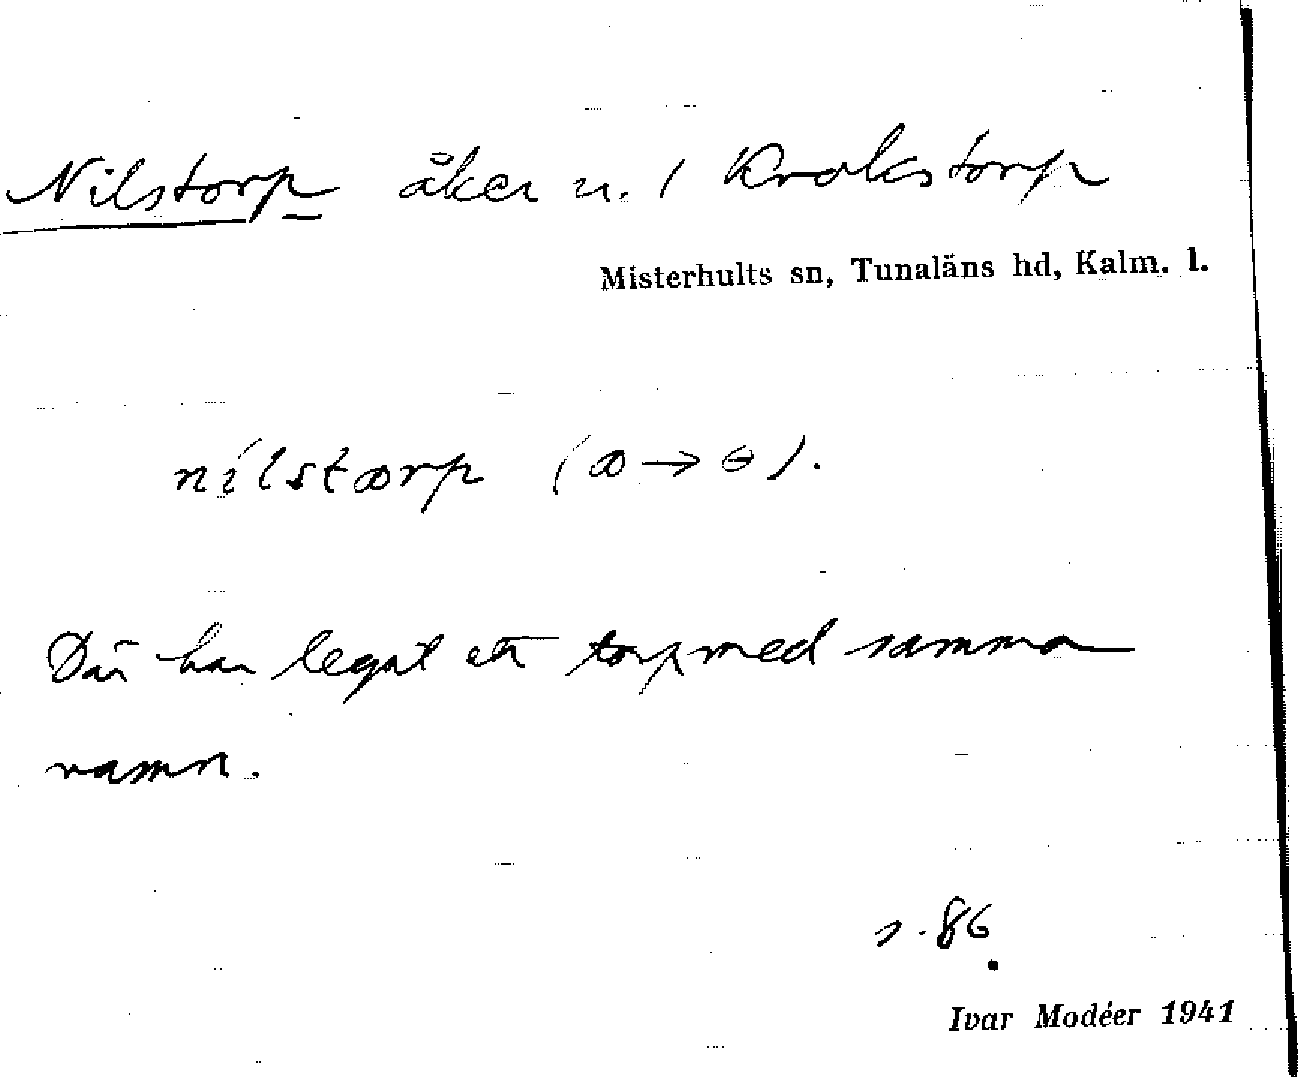 Nilstorp åker u. / Krokstorp
Misterhults sn, Tunaläns hd, Kalm. l.
nílstꝏrp (ꝏ → ɵ).
Där har legat ett torp med samma
namn.
s. 86
Ivar Modéer 1941